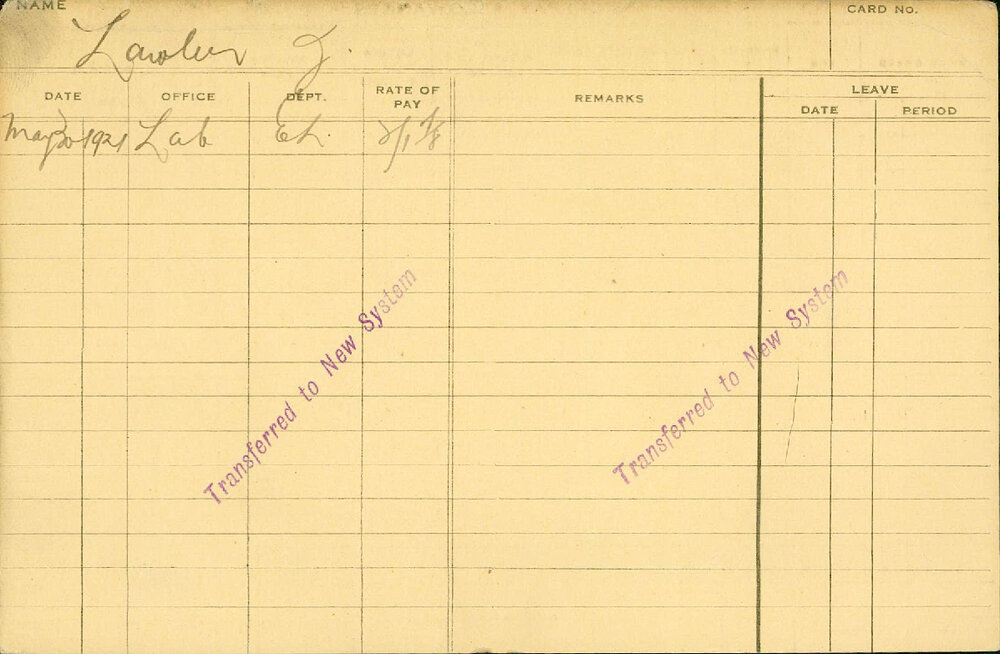 NAME
CARD No.
Lawler J.
DATE OFFICE DEPT. RATE OF PAY REMARKS LEAVE
DATE PERIOD
May 30 1921 Lab EL.
Transferred to New System
Transferred to New System